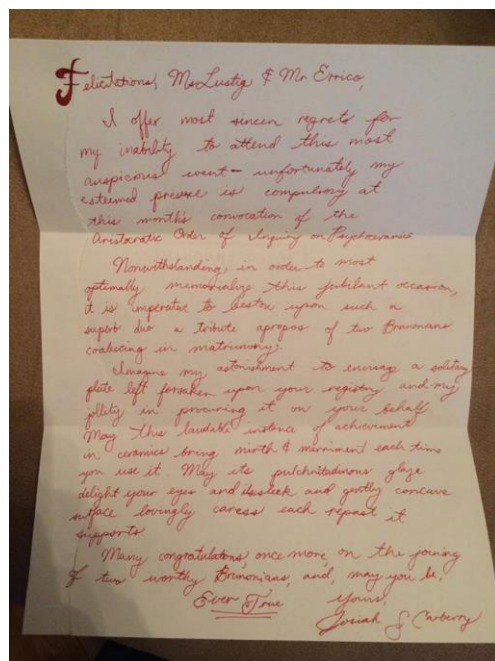 Felicitations, Ms Lustig & Mr Errico,
I offer most sincere regrets for
my inability to attend this most
auspicious event - unfortunately my
esteemed presence is compulsory at
this month's convocation of the
Aristocratic Order of Inquiry on Psychoceramics
Nonwithstanding, in order to most
optimally memorialize this jubilant occasion,
it is imperative to bestow upon such a
superb duo a tribute apropos of two Brunonians
coalescing in matrimony.
Imagine my astonishment to envisage a solitary
plate left forsaken upon your registry and my
jollity in procuring it on your behalf
May this laudable instance of achievement
in ceramics bring mirth & merriment each time
you use it. May its pulchritudinous glaze
delight your eyes and its sleek and gently concave
surface lovingly caress each repast it
supports
Many congratulations, once more, on the joining
of two worthy Brunonians, and, may you be,
Ever True Yours,
Josiah S Carberry